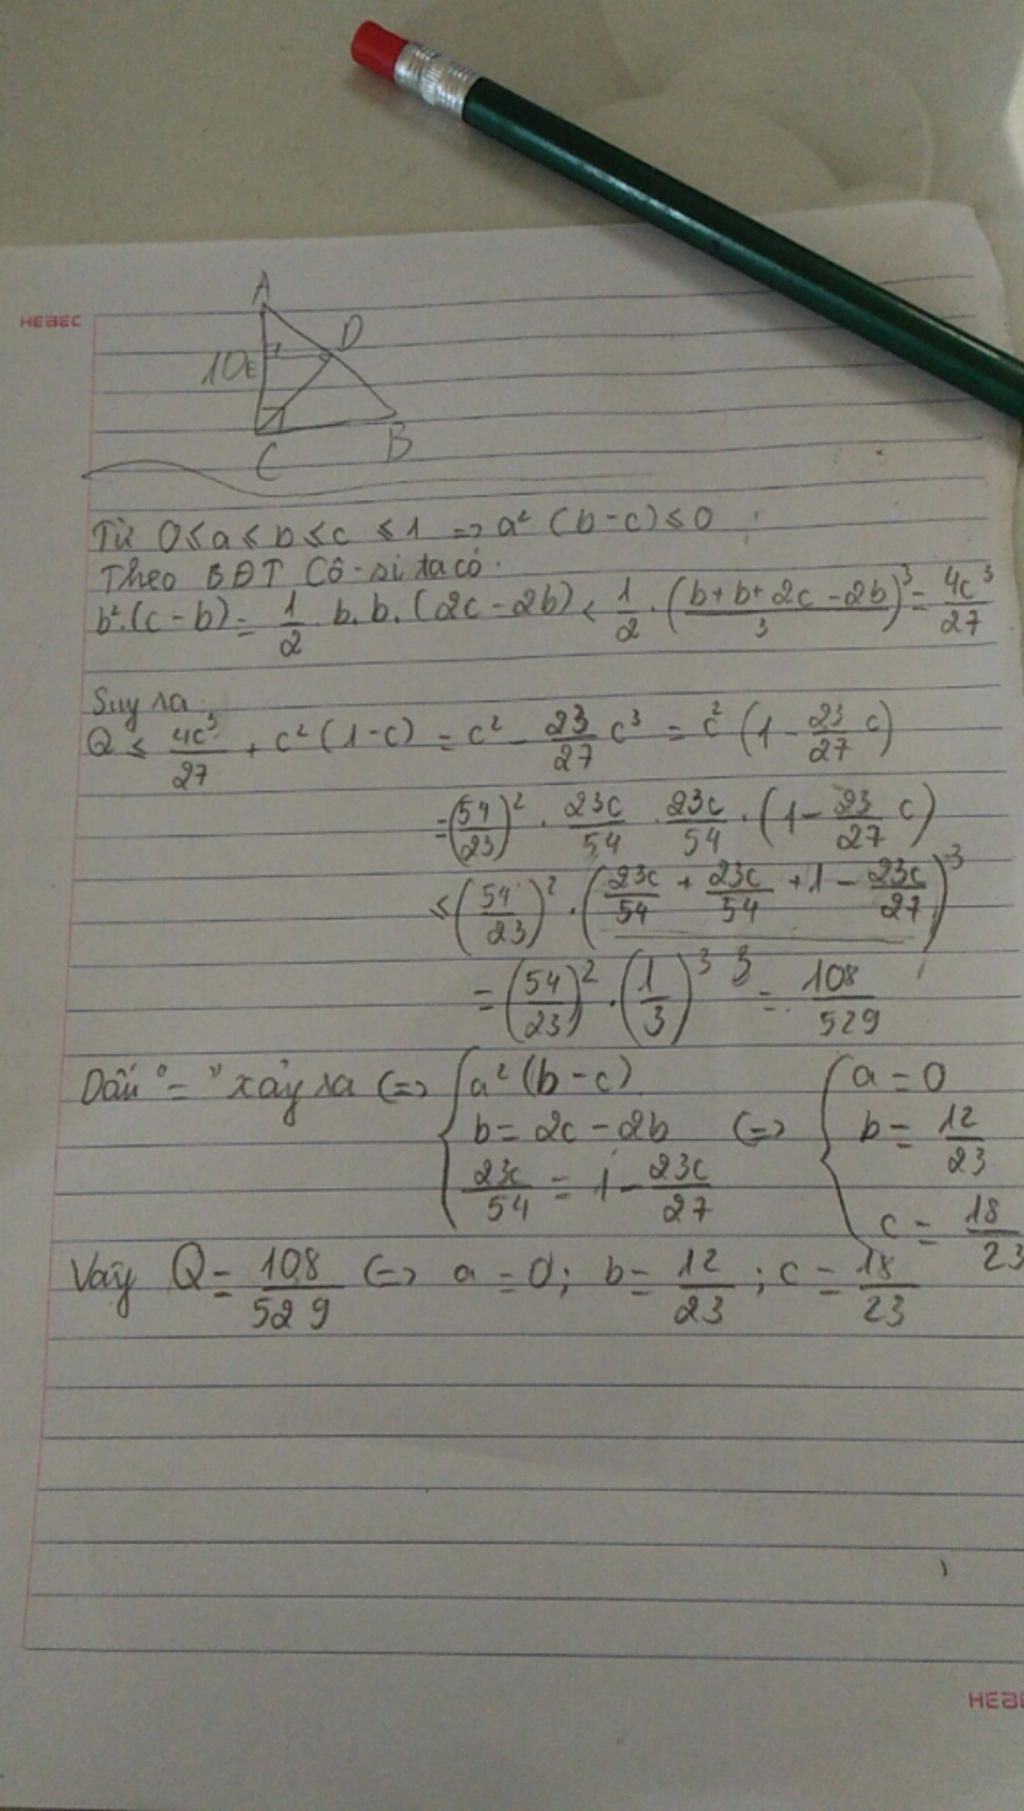 HEBEC
A
D
10
E
C
B
Từ 0 ≤ a ≤ b ≤ c ≤ 1 => a² (b-c) ≤ 0
Theo BĐT Cô-si ta có.
b².(c-b) = 1/2 b.b.(2c-2b) ≤ 1/2 . ((b+b+2c-2b)/3)³ = 4c³/27
Suy ra.
Q ≤ 4c³/27 + c²(1-c) = c² - 23/27 c³ = c² (1 - 23/27 c)
= (54/23)² . 23c/54 . 23c/54 . (1 - 23/27 c)
≤ (54/23)² . (23c/54 + 23c/54 + 1 - 23c/27)³
3
= (54/23)² . (1/3)³ = 108/529
Dấu "=" xảy ra <=> { a²(b-c) <=> { a = 0
b = 2c - 2b b = 12/23
23c/54 = 1 - 23c/27 c = 18/23
Vậy Q = 108/529 <=> a = 0; b = 12/23; c = 18/23
HEBE